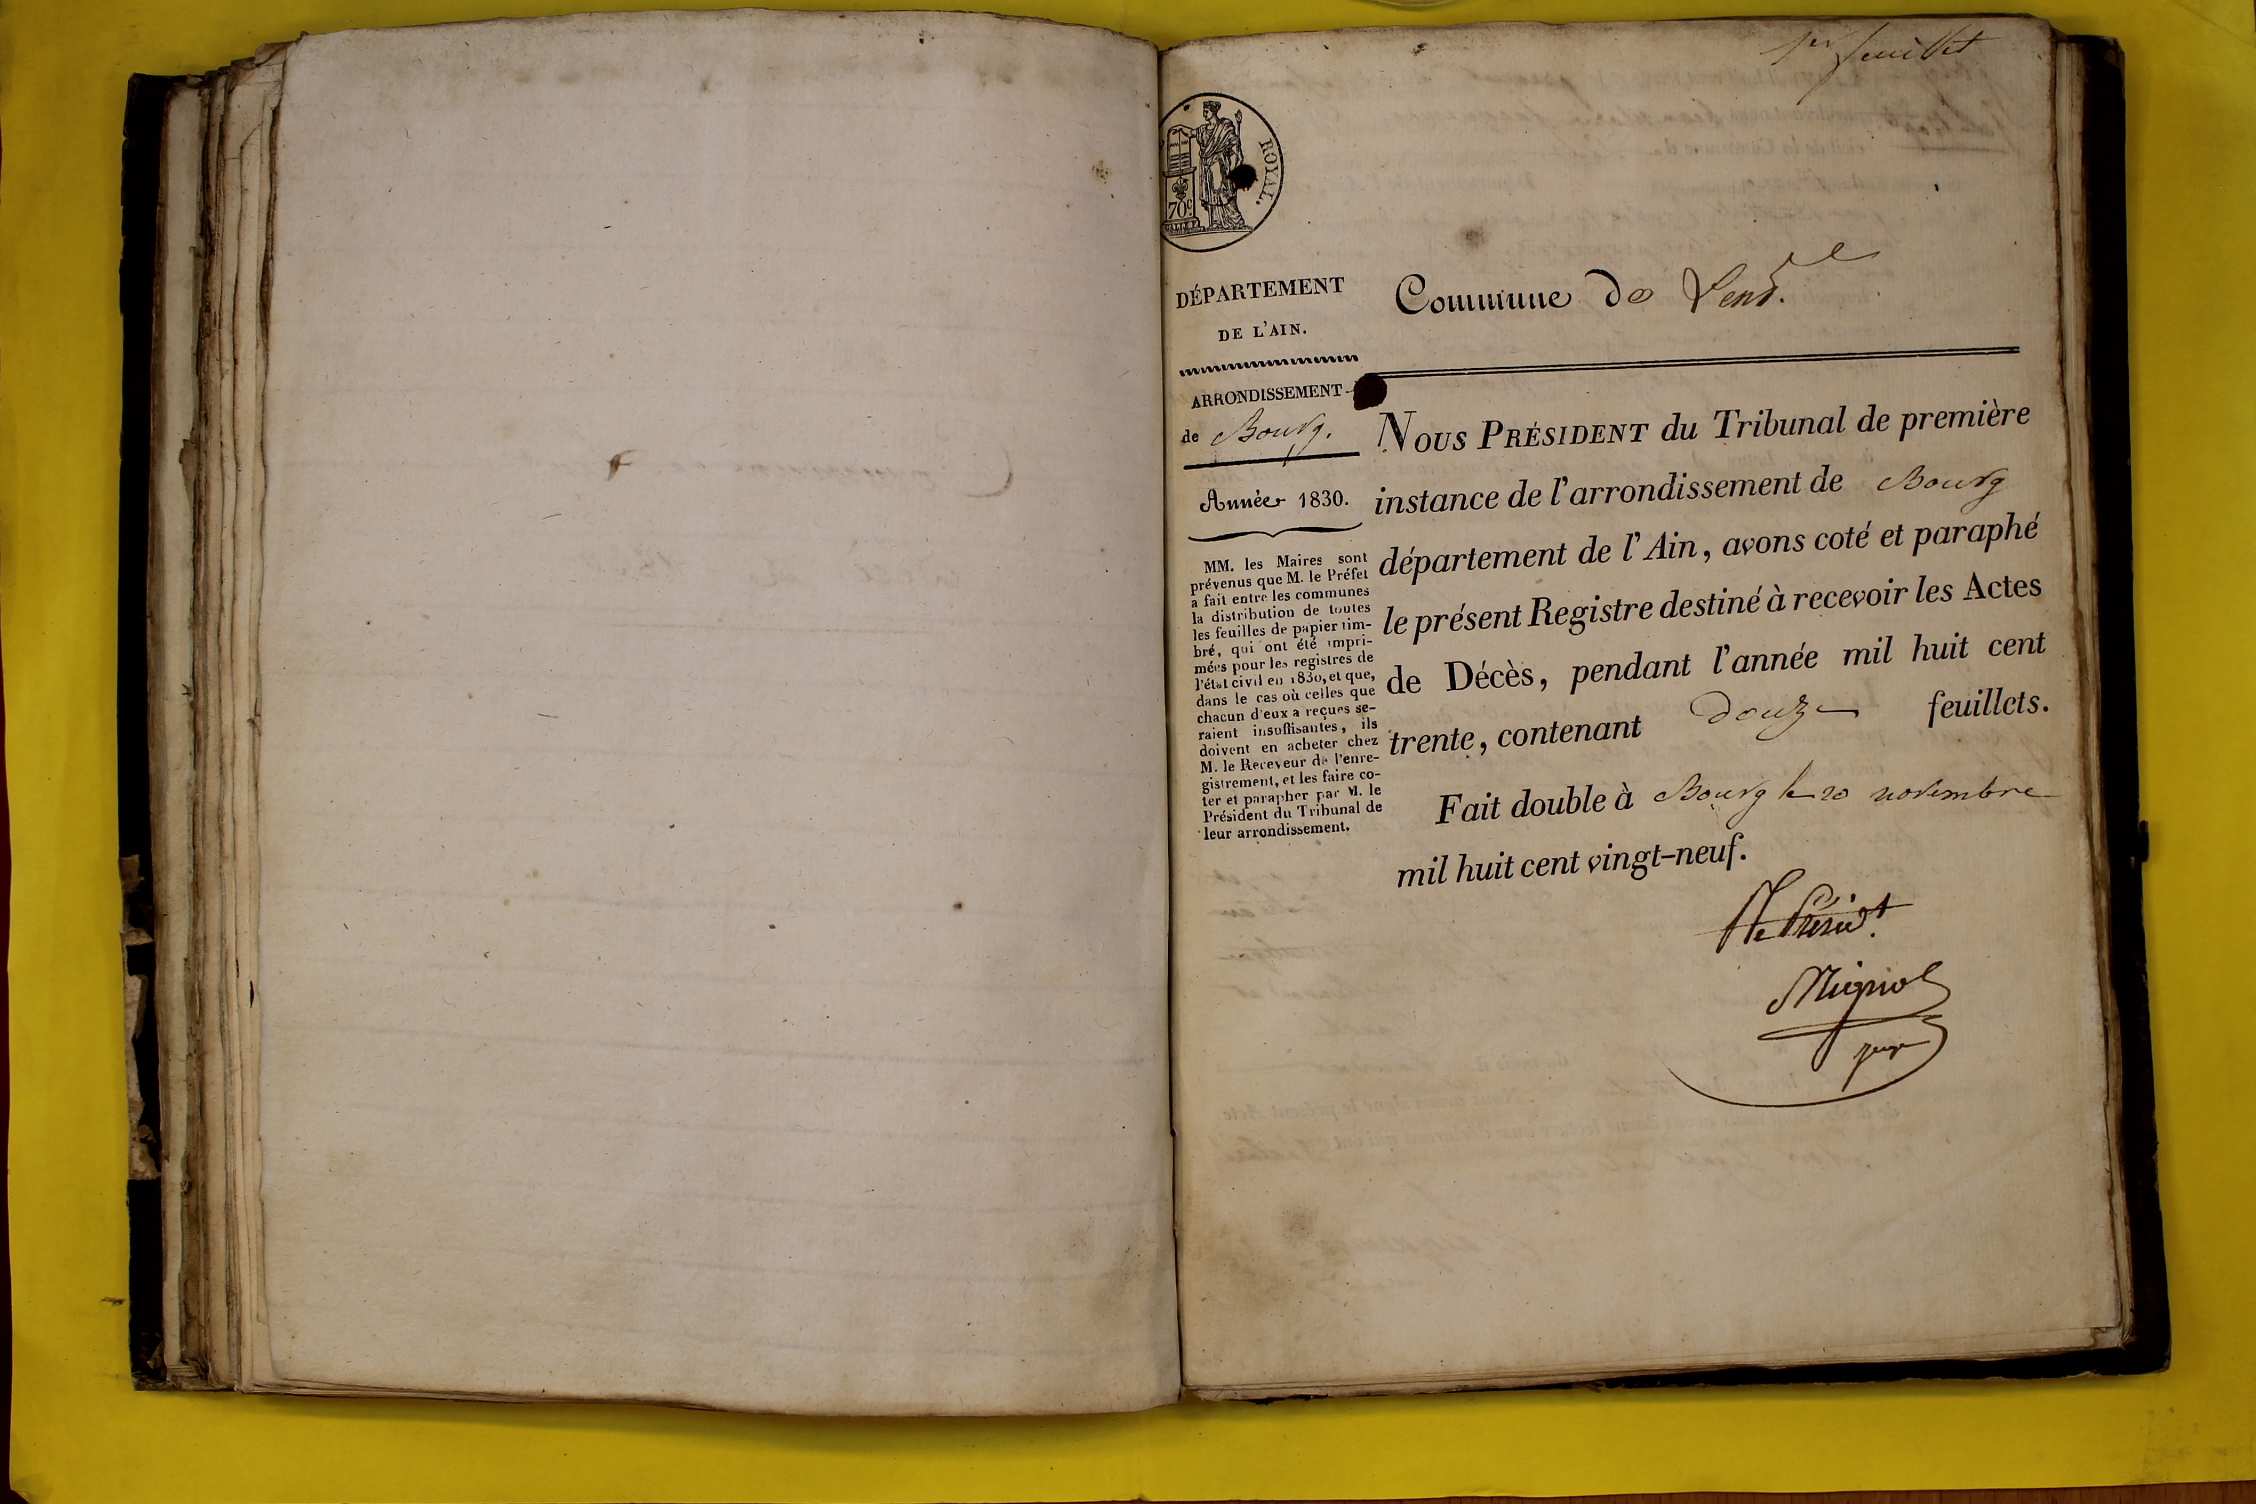 1er feuillet
ROYAL.
70c
DÉPARTEMENT
DE L'AIN.
Commune de
ARRONDISSEMENT
de Bourg.
Année 1830.
MM. les Maires sont
prévenus que M. le Préfet
a fait entre les communes
la distribution de toutes
les feuilles de papier tim-
bré, qui ont été impri-
mées pour les registres de
l'état civil en 1830, et que,
dans le cas où celles que
chacun d'eux a reçues se-
raient insuffisantes, ils
doivent en acheter chez
M. le Receveur de l'enre-
gistrement, et les faire co-
ter et parapher par M. le
Président du Tribunal de
leur arrondissement.
NOUS PRÉSIDENT du Tribunal de première
instance de l'arrondissement de Bourg
département de l'Ain, avons coté et paraphé
le présent Registre destiné à recevoir les Actes
de Décès, pendant l'année mil huit cent
trente, contenant douze feuillets.
Fait double à Bourg le 20 novembre
mil huit cent vingt-neuf.
juge